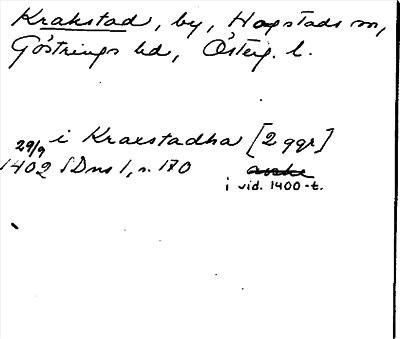 Krakstad, by, Hogstads sn,
Göstrings hd, Österg. l.
i Kraxstadha [2 ggr]
29/9
1402 SDns 1, s. 170
i vid. 1400-t.